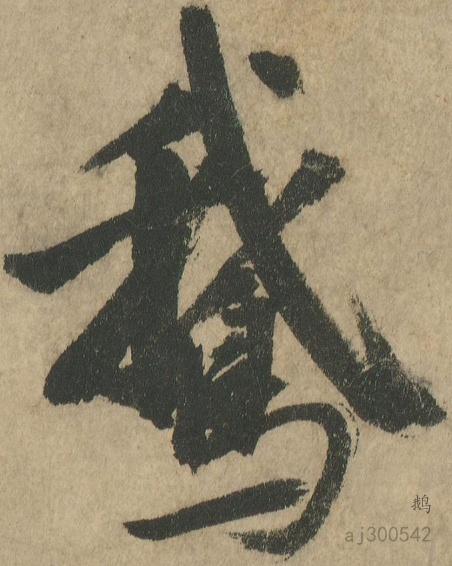 鵞
鹅
aj300542